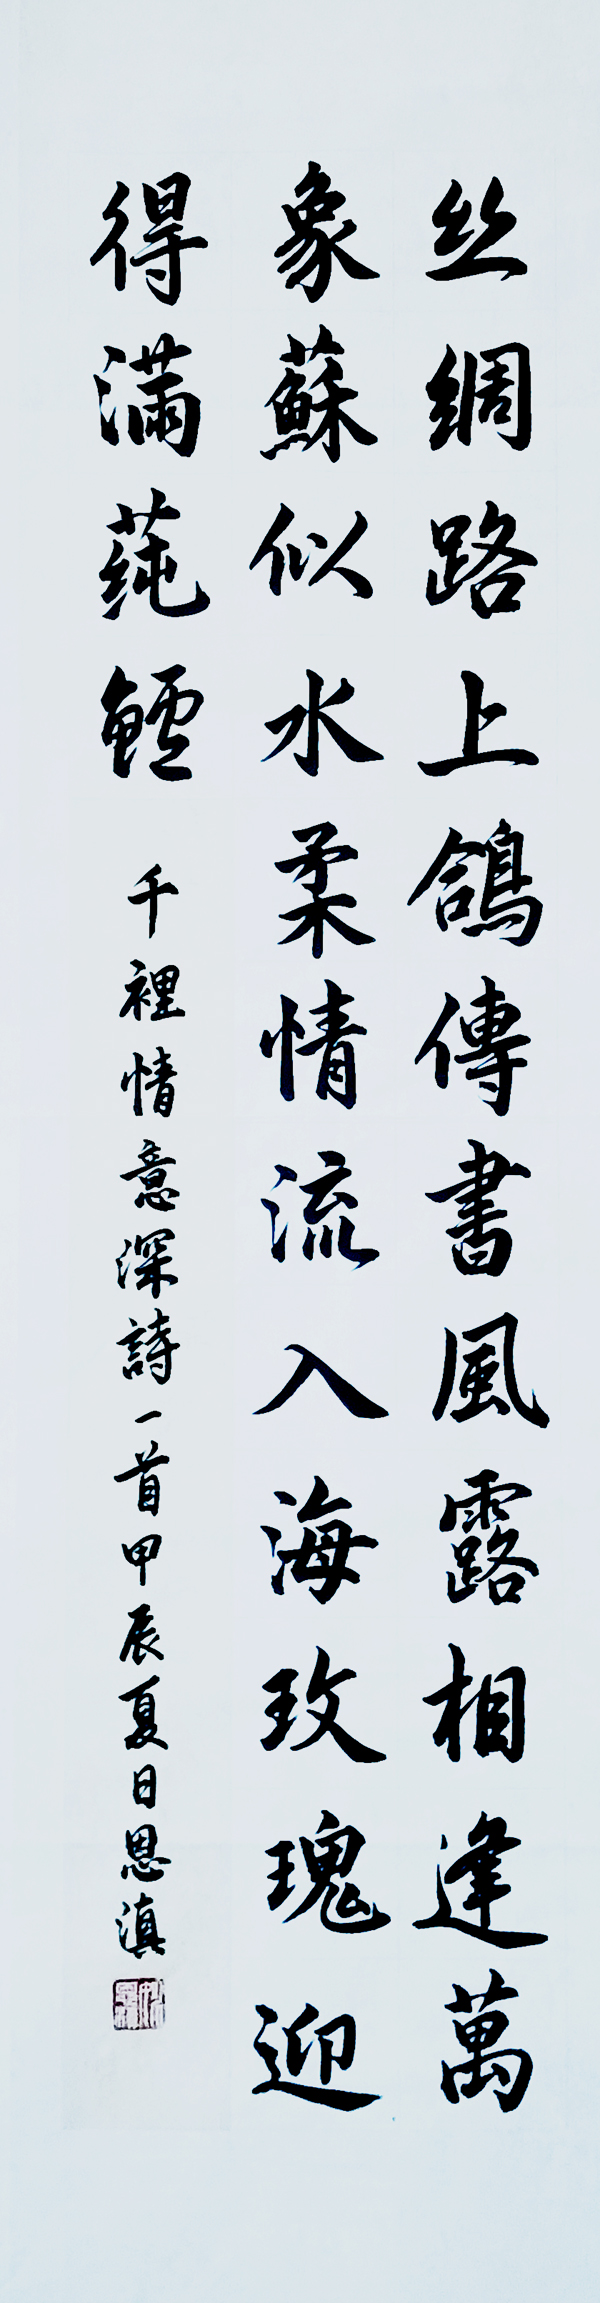 丝綢路上鴿傳書風露相逢萬
象蘇似水柔情流入海玫瑰迎
得滿莼鱸
千裡情意深詩一首甲辰夏日恩滇